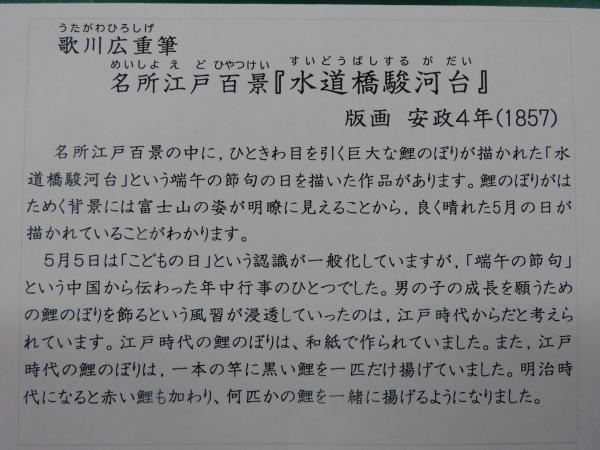 うたがわひろしげ
歌川広重筆
めいしょ え ど ひやつけい すいどうばしするが だい
名所江戸百景『水道橋駿河台』
版画 安政4年(1857)
名所江戸百景の中に,ひときわ目を引く巨大な鯉のぼりが描かれた「水
道橋駿河台」という端午の節句の日を描いた作品があります。鯉のぼりがは
ためく背景には富士山の姿が明瞭に見えることから,良く晴れた5月の日が
描かれていることがわかります。
5月5日は「こどもの日」という認識が一般化していますが,「端午の節句」
という中国から伝わった年中行事のひとつでした。男の子の成長を願うため
の鯉のぼりを飾るという風習が浸透していったのは,江戸時代からだと考えら
れています。江戸時代の鯉のぼりは、和紙で作られていました。また,江戸
時代の鯉のぼりは,一本の竿に黒い鯉を一匹だけ揚げていました。明治時
代になると赤い鯉も加わり、何匹かの鯉を一緒に揚げるようになりました。